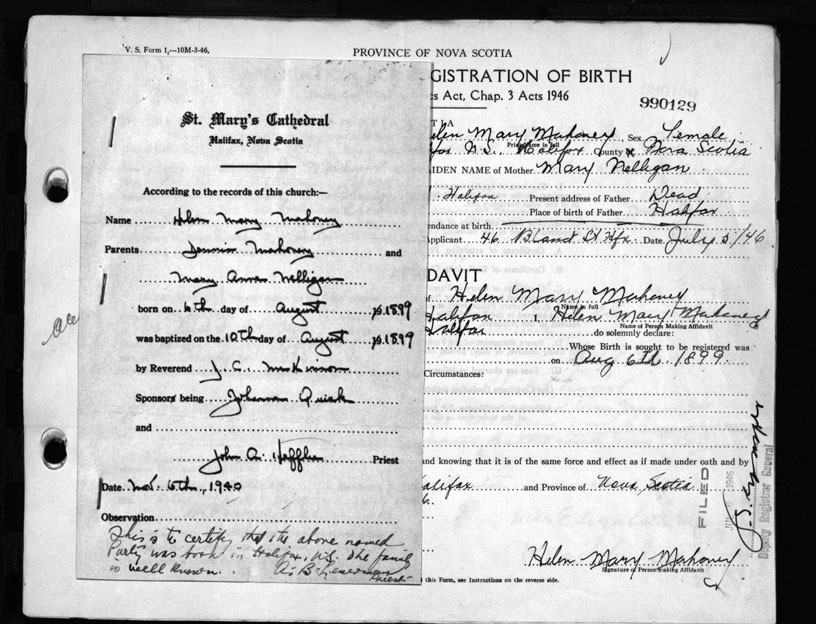 V. S. Form 1,—10M-3-46,
PROVINCE OF NOVA SCOTIA
GISTRATION OF BIRTH
cs Act, Chap. 3 Acts 1946
990129
St. Mary's Cathedral
Halifax, Nova Scotia
According to the records of this church:—
Name Helen Mary Mahoney
Parents Dennis Mahoney and
Mary Anne Nelligan
born on 6th day of August A.D. 1899
was baptized on the 10th day of August A.D. 1899
by Reverend J. C. McKinnon
Sponsors being Johanna Quirk
and
John A. Priest
Date Nov. 6th, 1940
Observation
This is to certify that the above named
Party was born in Halifax, N.S. the family
is well known. A. B. Priest
elen Mary Mahoney Sex Female
Print name in full
fax N.S. Halifax County Nova Scotia
AIDEN NAME of Mother Mary Nelligan
Halifax Present address of Father Dead
Place of birth of Father Halifax
endance at birth
pplicant 46 Bland St Hfx. Date July 5/46
DAVIT
of Helen Mary Mahoney
Name in full
Halifax I, Helen Mary Mahoney
Name of Person Making Affidavit
Halifax do solemnly declare:
Whose Birth is sought to be registered was
on Aug 6th 1899
Circumstances:
and knowing that it is of the same force and effect as if made under oath and by
alifax and Province of Nova Scotia
FILED
Deputy Registrar General
Helen Mary Mahoney
Signature of Person Making Affidavit
this Form, see Instructions on the reverse side.